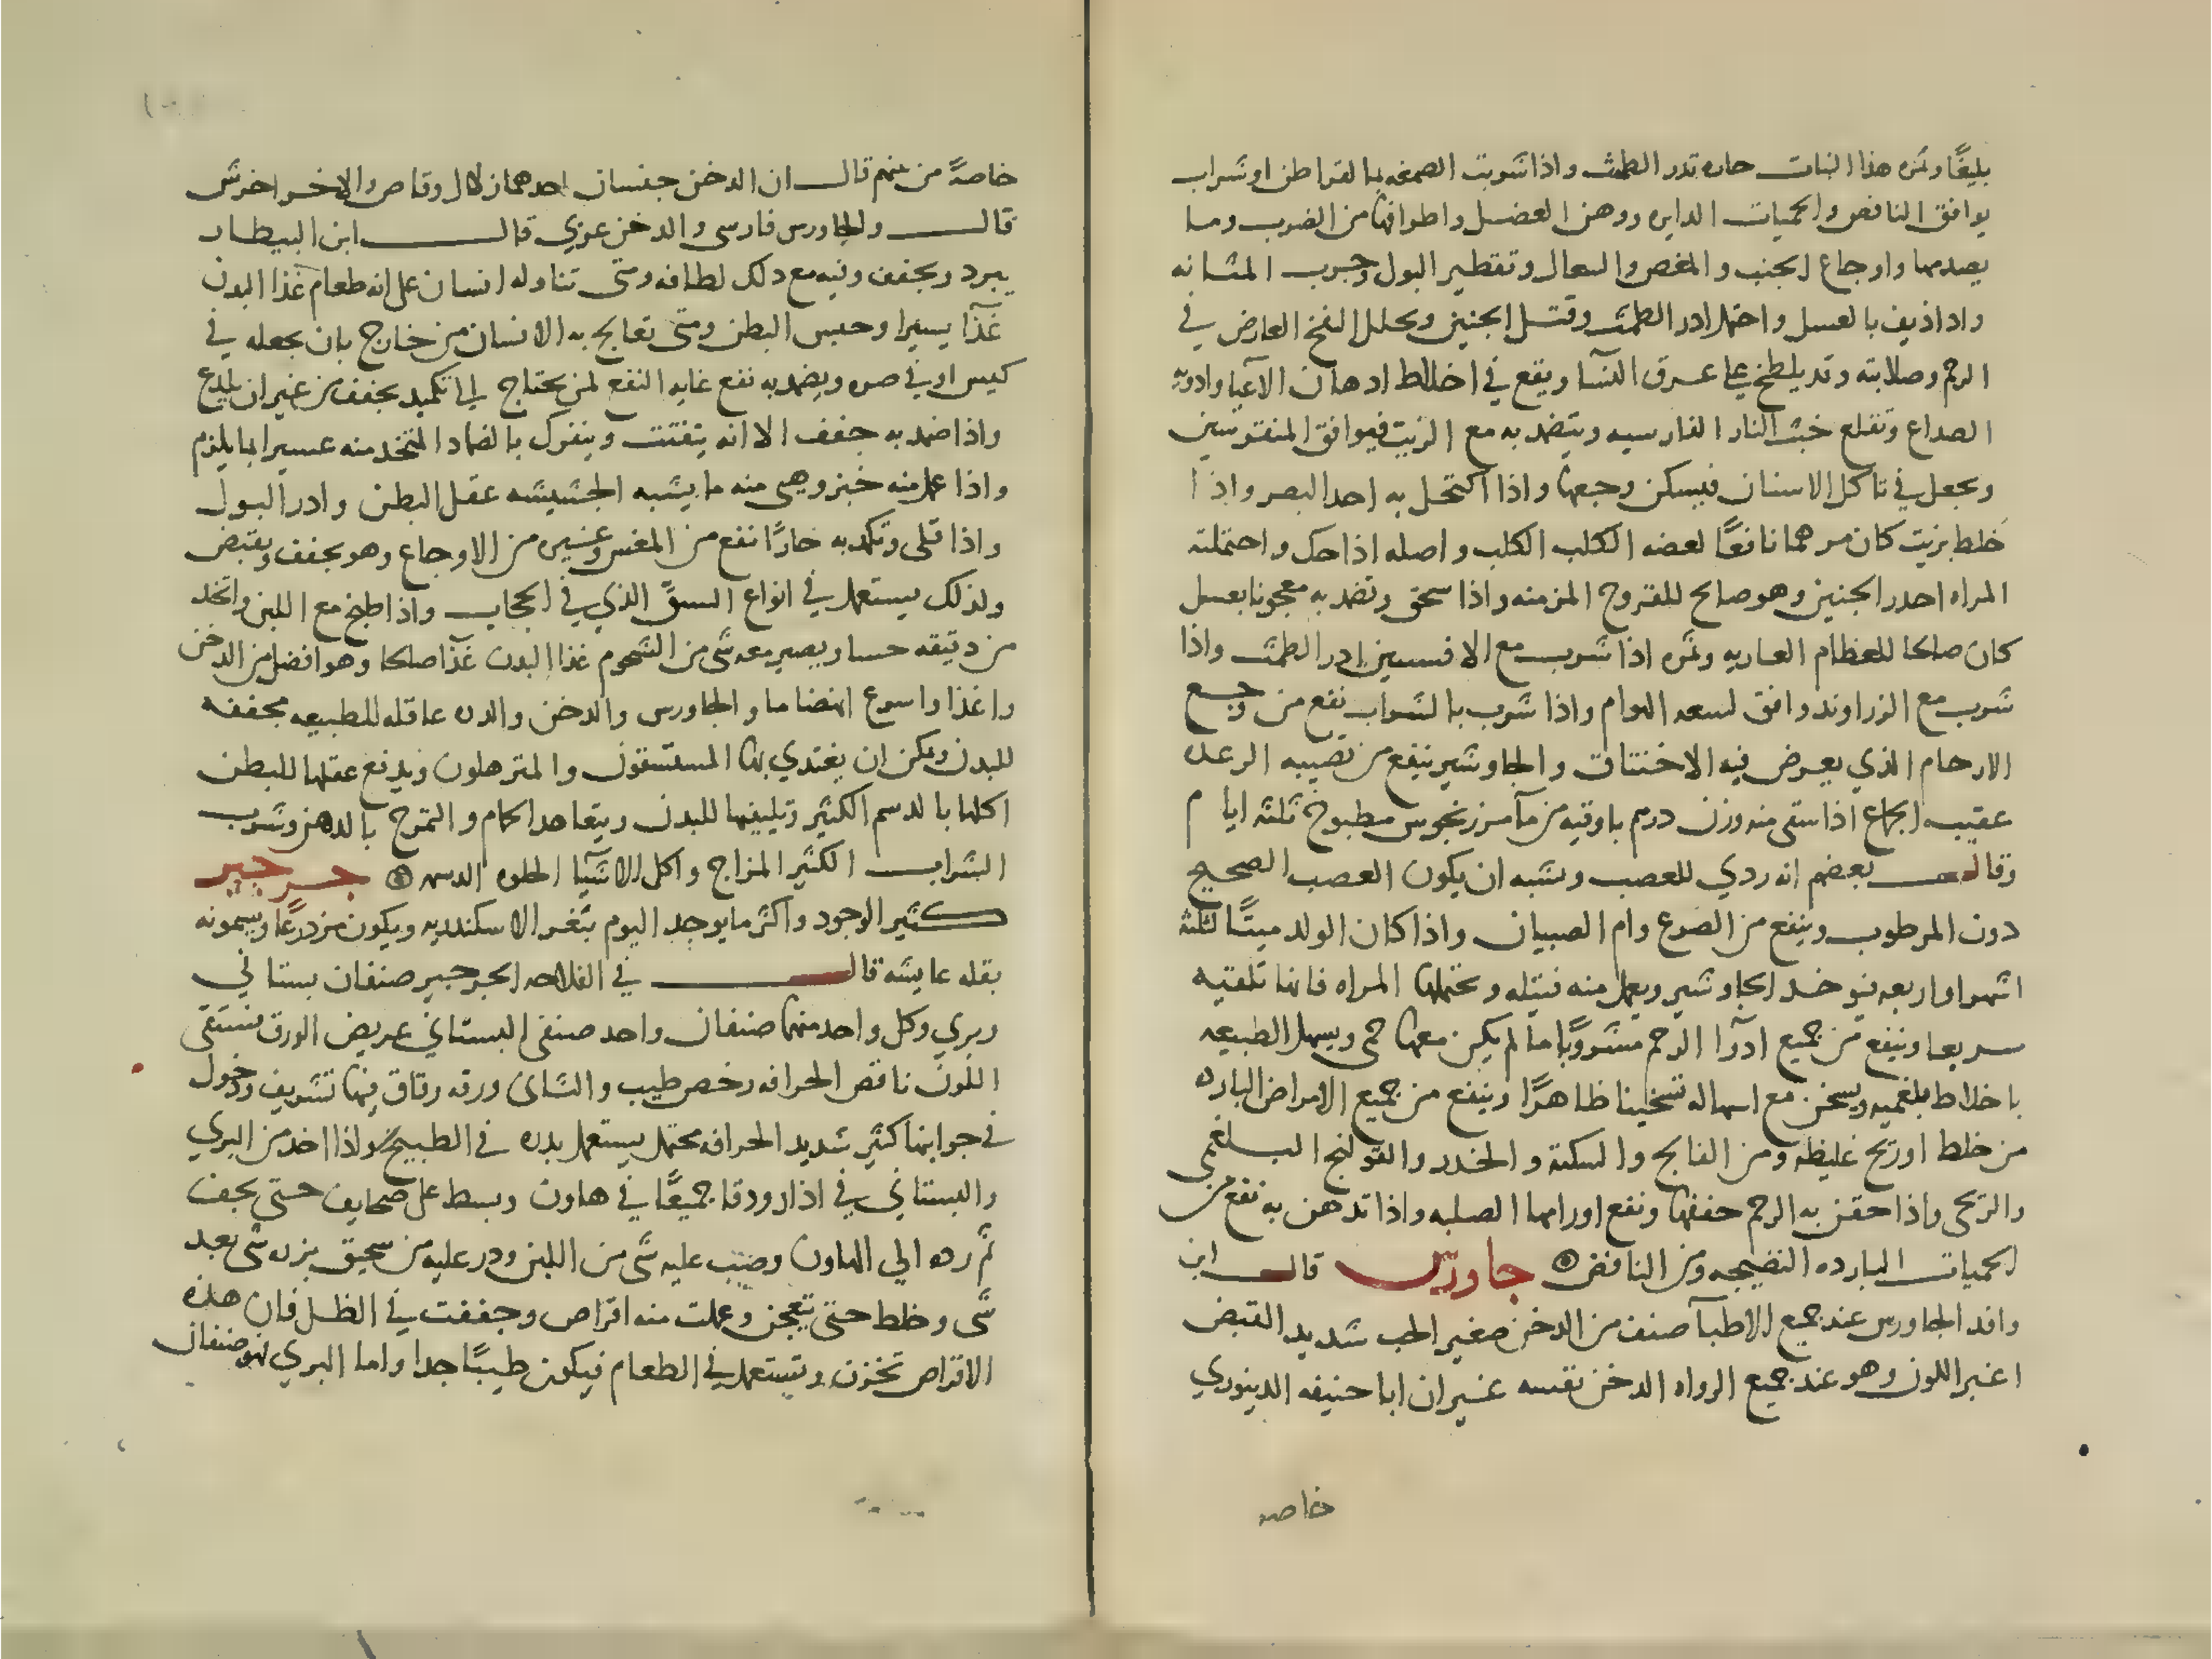 بليغًا وثمره هذا النبات حاره تدر الطمث واذا شربت الصمغه بما القراطن او شراب
يوافق النافض والحميات الدايره ووهن العضل واطرافها من الضرب وما
يصدمها واوجاع الجنب والمغص والسعال وتقطير البول وجرب المثانه
واذا ذيف بالعسل واحتمل ادر الطمث وقتل الجنين ويحلل النفخ العارض في
الرحم وصلابته وقد يلطخ علي عرق النسآ ويقع في اخلاط ادهان الاعيا وادويه
الصداع وتقلع خبث النار الفارسيه ويتضمد به مع الزبيت فيوافق المنقوسين
ويجعل في تاكل الاسنان فيسكن وجعها واذا اكتحل به احد البصر واذا
خلط بزيت كان مرهما نافعًا لعضه الكلب الكلب واصله اذا حك واحتملته
المراه احدر الجنين وهو صالح للقروح المزمنه واذا سحق وتضمد به معجونا بعسل
كان صالحا للعظام العاريه وثمره اذا شرب مع الافسنتين ادر الطمث واذا
شرب مع الزراوند وافق لسعه الهوام واذا شرب بالشراب نفع من وجع
الارحام الذي يعرض فيه الاختناق والجاوشير ينفع من تصيبه الرعده
عقيب الجماع اذا سقي منه وزن درهم باوقيه من مآ مرزنجوس مطبوخ ثلثه ايام
وقال بعضهم انه ردي للعصب ويشبه ان يكون العصب الصحيح
دون المرطوب وينفع من الصرع وام الصبيان واذا كان الولد ميتًا لثلثه
اشهر او اربعه فيوخد الجاوشير ويعمل منه فتيله وتحتملها المراه فانها تلقيه
سريعا وينفع من جميع ادوآ الرحم مشروبًا ما لم يكن معها حمى ويسهل الطبيعه
باخلاط بلغميه ويسخن مع اسهاله تسخينا ظاهرًا وينفع من جميع الامراض البارده
من خلط او ريح غليظه ومن الفالج والسكته والخدر والقولنج البلغمي
والريحي واذا حقن به الرحم جففها ونفع اورامها الصلبه واذا تدهن به نفع من
الحميات البارده النضيجه ومن النافض جاورس قال ابن
وافد الجاورس عند جميع الاطبآ صنف من الدخن صغير الحب شديد القبض
اغبر اللون وهو عند جميع الرواه الدخن نفسه غير ان ابا حنيفه الدينوري
خاصه
خاصةً من بينهم قال ان الدخن جنسان احدهما زلال وقاص والاخر اخرش
قال والجاورس فارسي والدخن عربي قال ابن البيطار
يبرد ويجفف وفيه مع دلك لطافه ومتى تناوله انسان على انه طعام غذا البدن
غذآ يسيرا وحبس البطن ومتى تعالج به الانسان من خارج بان يجعله في
كيس او في صره ويضمد به نفع غايه النفع لمن يحتاج الي تكميد يجفف من غير ان يلدع
واذا ضمد به جفف الا انه يتفتت وينفرك بالضماد المتخد منه عسيرا ما يلزم
واذا عمل منه خبز وهي منه ما يشبه الجشيشه عقل البطن وادر البول
واذا قلي وتكمد به حارًا نفع من المغس وغيره من الاوجاع وهو يجفف ويقبض
ولذلك يستعمل في انواع السق الذي في الحجاب واذا طبخ مع اللبن واتخذ
من دقيقه حسا ويصير معه شي من الشحوم غذا البدن غذآ صالحا وهو افضل من الدخن
واغذا واسرع انهضاما والجاورس والدخن والدره عاقله للطبيعه مجففه
للبدن ويمكن ان يغتدي بها المستسقون والمترهلون ويدفع عقلها للبطن
اكلها بالدسم الكثير وتليينها للبدن ويتعاهد الحمام والتمرخ بالدهن وشرب
الشراب الكثير المزاج واكل الاشيآ الحلوه الدسمه جرجير
كثير الوجود واكثر ما يوجد اليوم بثغر الاسكندريه ويكون مزدرعًا ويسمونه
بقله عايشه قال في الفلاحه الجرجير صنفان بستاني
وبري وكل واحد منهما صنفان واحد صنفى البستاني عريض الورق فستقى
اللون ناقص الحرافه رخص طيب والثانى ورقه رقاق فيها تشريف ودخول
في جوانبها كثير شديد الحرافه محتمل يستعمل بدره في الطبيخ واذا اخد من البري
والبستاني في اذار ودقا جميعًا في هاون وبسط على صحايف حتى يجف
ثم رده الي الهاون وصُب عليه شي من اللبن ودر عليه من سحيق بزره شي بعد
شي وخلط حتى يتعجن وعملت منه اقراص وجففت في الظل فان هذه
الاقراص تخزن وتستعمل في الطعام فيكون طيبًا جدا واما البري فهو صنفان